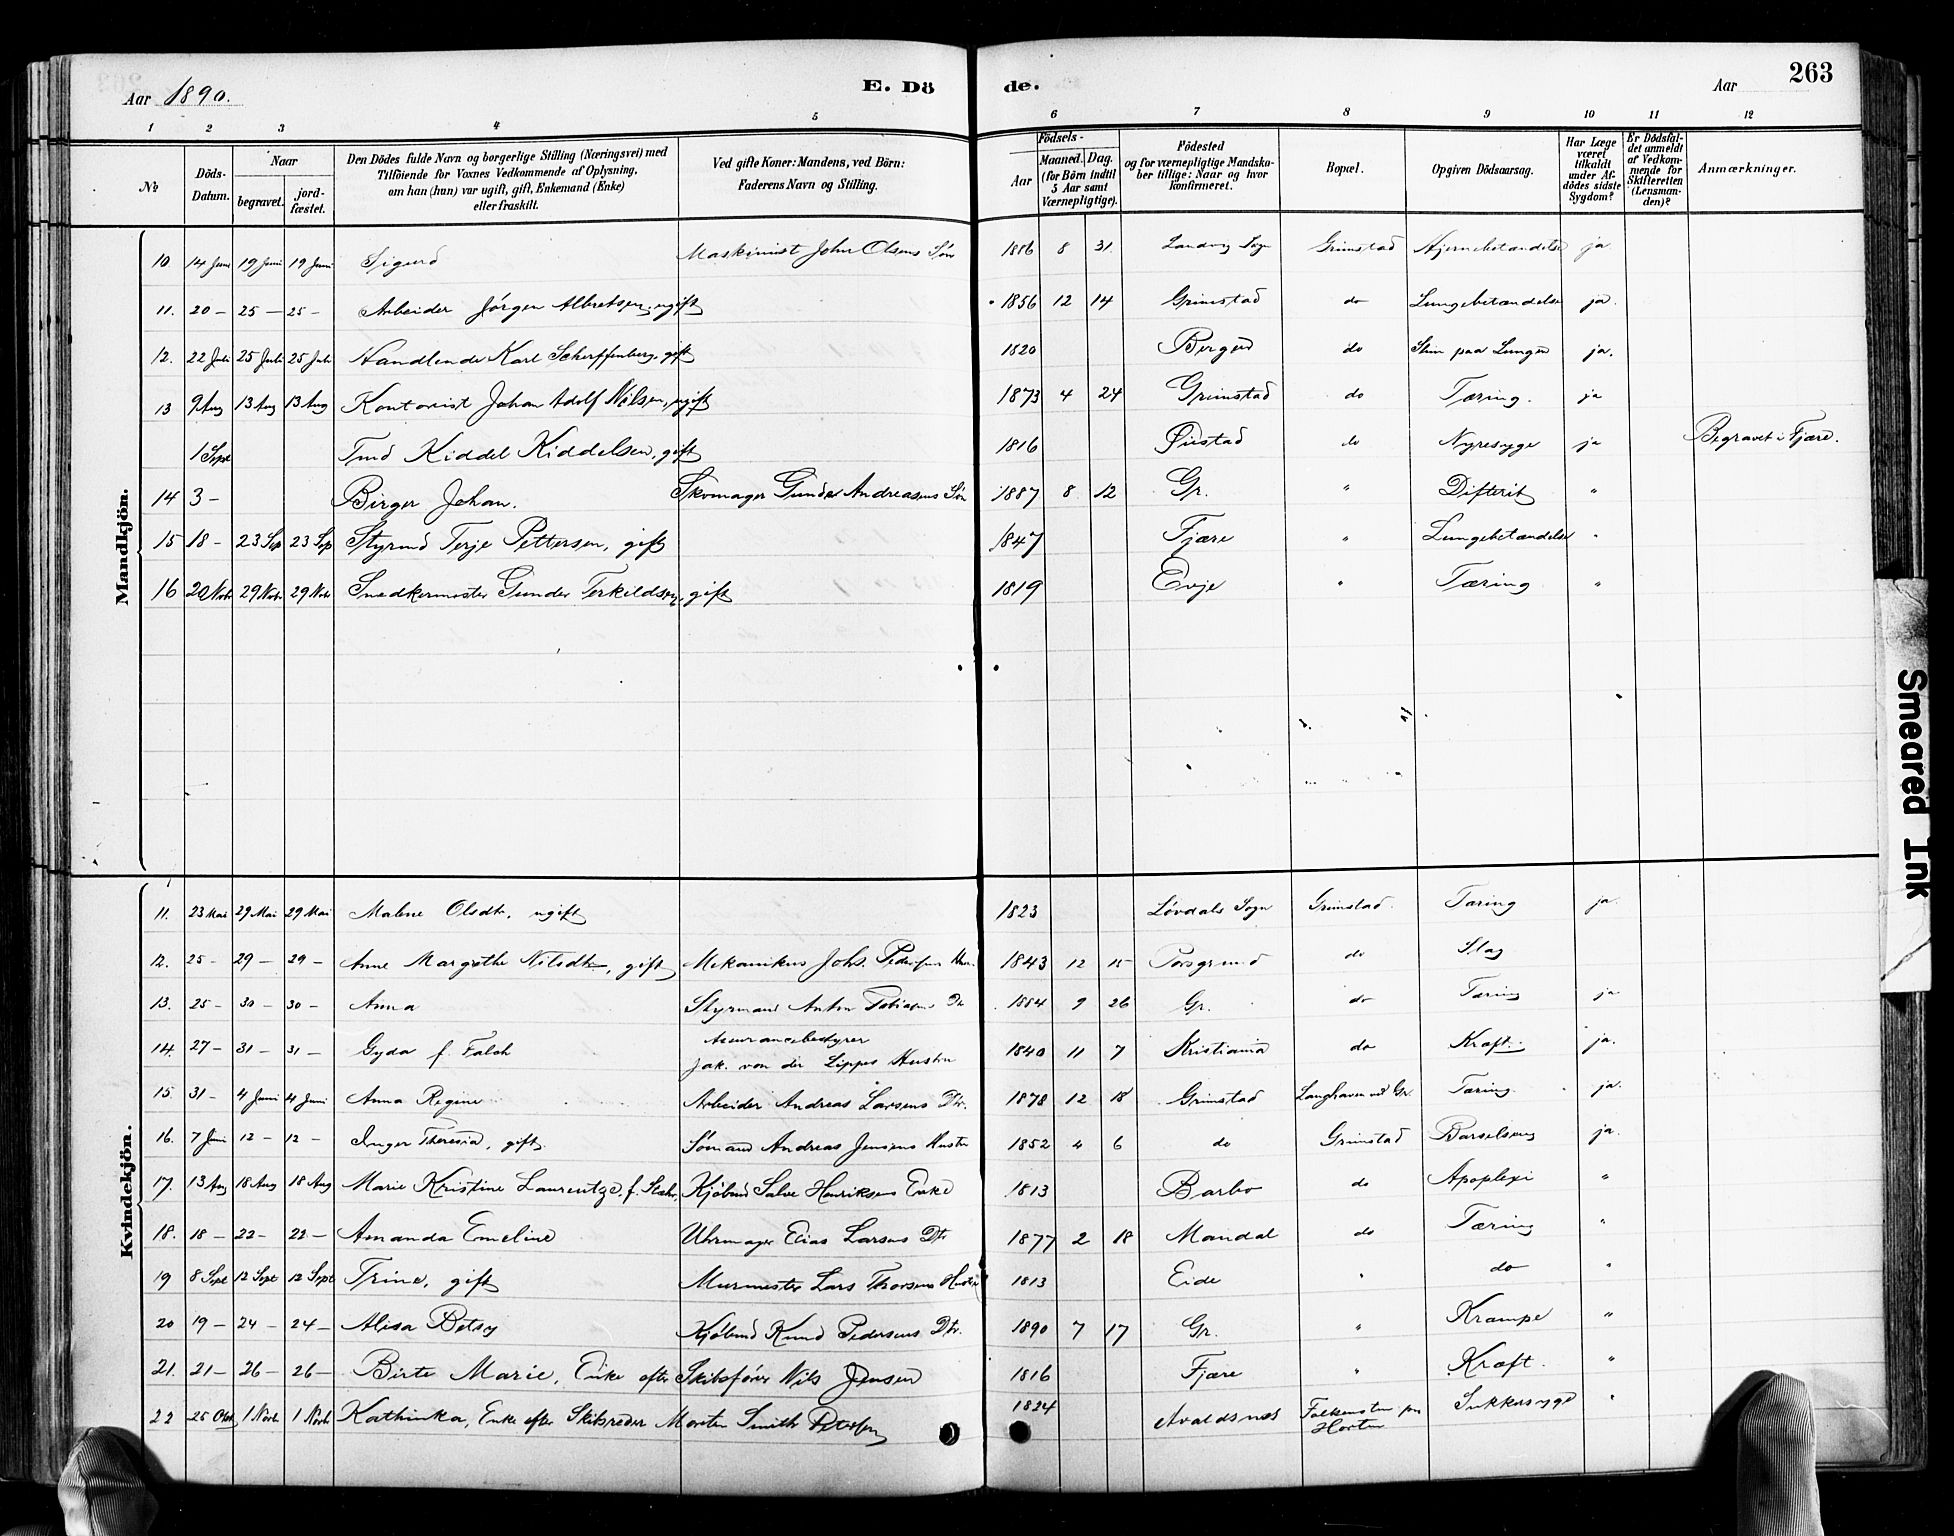 Aar 1890. E. Dö de. Aar 263
1 2 3 4 5 6 7 8 9 10 11 12
No Döds-Datum. Naar begravet. jordfæstet. Den Dödes fulde Navn og borgerlige Stilling (Næringsvei) med Tilföiende for Voxnes Vedkommende af Oplysning, om han (hun) var ugift, gift, Enkemand (Enke) eller fraskilt. Ved gifte Koner: Mandens, ved Börn: Faderens Navn og Stilling. Födsels- Aar Maaned. Dag. (for Börn indtil 5 Aar samt Værnepligtige). Födested og for værnepligtige Mandskaber tillige: Naar og hvor konfirmeret. Bopæl. Opgiven Dödsaarsag. Har Læge været tilkaldt under Afdödes sidste Sygdom? Er Dödsfaldet anmeldt af Vedkommende for Skifteretten (Lensmanden)? Anmærkninger.
Mandkjön.
10. 14 Juni 19 Juni 19 Juni Sigurd Maskinist John Olsens Søn 1886 8 31 Landvig Sogn Grimstad Hjernebetændelse ja
11. 20 – 25 – 25 – Arbeider Jørgen Albretsen, ugift 1856 12 14 Grimstad do Lungebetændelse ja.
12. 22 Juli 25 Juli 25 Juli Handlende Karl Scherffenberg, gift 1820 Bergen do Slim paa Lungen ja.
13 9 Aug 13 Aug 13 Aug Kontorist Johan Adolf Nilsen, ugift 1873 4 24 Grimstad do Tæring. ja
1 Sept Kiddel Kiddelsen, gift 1816 Øiestad do Nyresyge ja Begravet i Fjære.
14 3 – Birger Johan. Skomager Gunder Andreasens Søn 1887 8 12 Gr. " Difterit "
15 18 – 23 Sep 23 Sep Styrmd Terje Pettersen, gift 1847 Fjære " Lungebetændelse "
16 20 Nvbr 29 Nvbr 29 Nvbr Snedkermester Gunder Terkildsen, gift 1819 Evje " Tæring "
Kvindekjön.
11. 23 Mai 29 Mai 29 Mai Malene Olsdtr, ugift 1823 Løvdals Sogn Grimstad. Tæring ja
12. 25 – 29 – 29 – Anne Margethe Nilsdtr, gift Mekanikus Johs. Pedersens Hu. 1843 12 15 Porsgrund do Slag
13. 25 – 30 – 30 – Anna Styrmand Anton Tobiasens Dtr 1884 9 26 Gr. do Tæring ja
14. 27 – 31 – 31 – Gyda f. Falch Assurancebestyrer
Jak. von der Lippes Hustru 1840 11 7 Kristiania do Kræft. ja.
15. 31 – 4 Juni 4 Juni Anna Regine Arbeider Andreas Larsens Dtr. 1878 12 18 Grimstad Langhaven ved Gr. Tæring. ja.
16. 7 Juni 12 – 12 – Inger Theresia, gift Sømand Andreas Jensens Hustru 1852 4 6 do Grimstad Barselseng ja.
17. 13 Aug 18 Aug 18 Aug Marie Kristine Laurentze, f. Kjøbmd Salve Henriksens Enke 1813 Barbo do Apoplexi "
18. 18 – 22 – 22 – Amanda Emeline Uhrmager Elias Larsens Dtr 1877 2 18 Mandal do Tæring "
19 8 Sept 12 Sept 12 Sept Trine, gift Murmester Lars Thorsens Hustru 1813 Eide " do "
20 19 – 24 – 24 – Alisa Betsy Kjøbmd Knud Pedersens Dtr. 1890 7 17 Gr. " Krampe "
21. 21 – 26 – 26 – Birte Marie, Enke efter Skibsfører Nils Jensen 1816 Fjære " Kræft. "
22 25 Oktb 1 Novb 1 Novb Kathinka, Enke efter Skibsreder Morten Smith Petersen 1824 Avaldsnæs Falkensten pr Horten Sukkersyge "
Smeared Ink